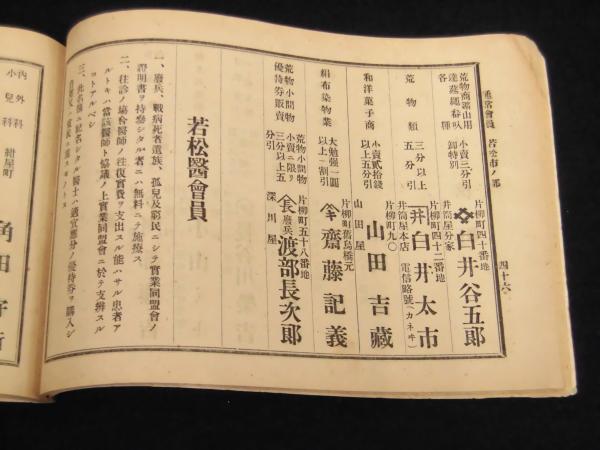 通常會員 若松市ノ部
四十六
荒物商鑛山用
達莚繩春叺
各種
小賣三分引
卸特別
片柳町四十番地
井筒屋分家
白井谷五郎
荒物類
三分以上
五分引
片柳町四十二番地
井筒屋本店
電信略號(カネヰ)
井 白井太市
和洋菓子商
小賣貳拾錢
以上五分引
片柳町九〇
山田屋
山田吉藏
絹布染物業
大勉强一圓
以上一割引
片柳町舊鳥橋元
齋藤記義
荒物小間物
優待券販賣
荒物小間物
小賣ニ限リ
三分以上五
分引
片柳町五十八番地
廢兵
深川屋
渡部長次郎
若松醫會員
一、廢兵、戰病死者遺族、孤兒及窮民ニシテ實業同盟會ノ
證明書ヲ持參シタル者ニハ無料ニテ施療ス
二、往診ノ場合醫師ノ往復實費ヲ支出スル能ハサル患者ア
ルトキハ當該醫師ト協議ノ上實業同盟會ニ於テ支辨スル
コトアルベシ
三、此名簿ニ記名シタル醫士ハ適宜應分ノ優待券ヲ購入シ
內外科
小兒科
紺屋町
角田